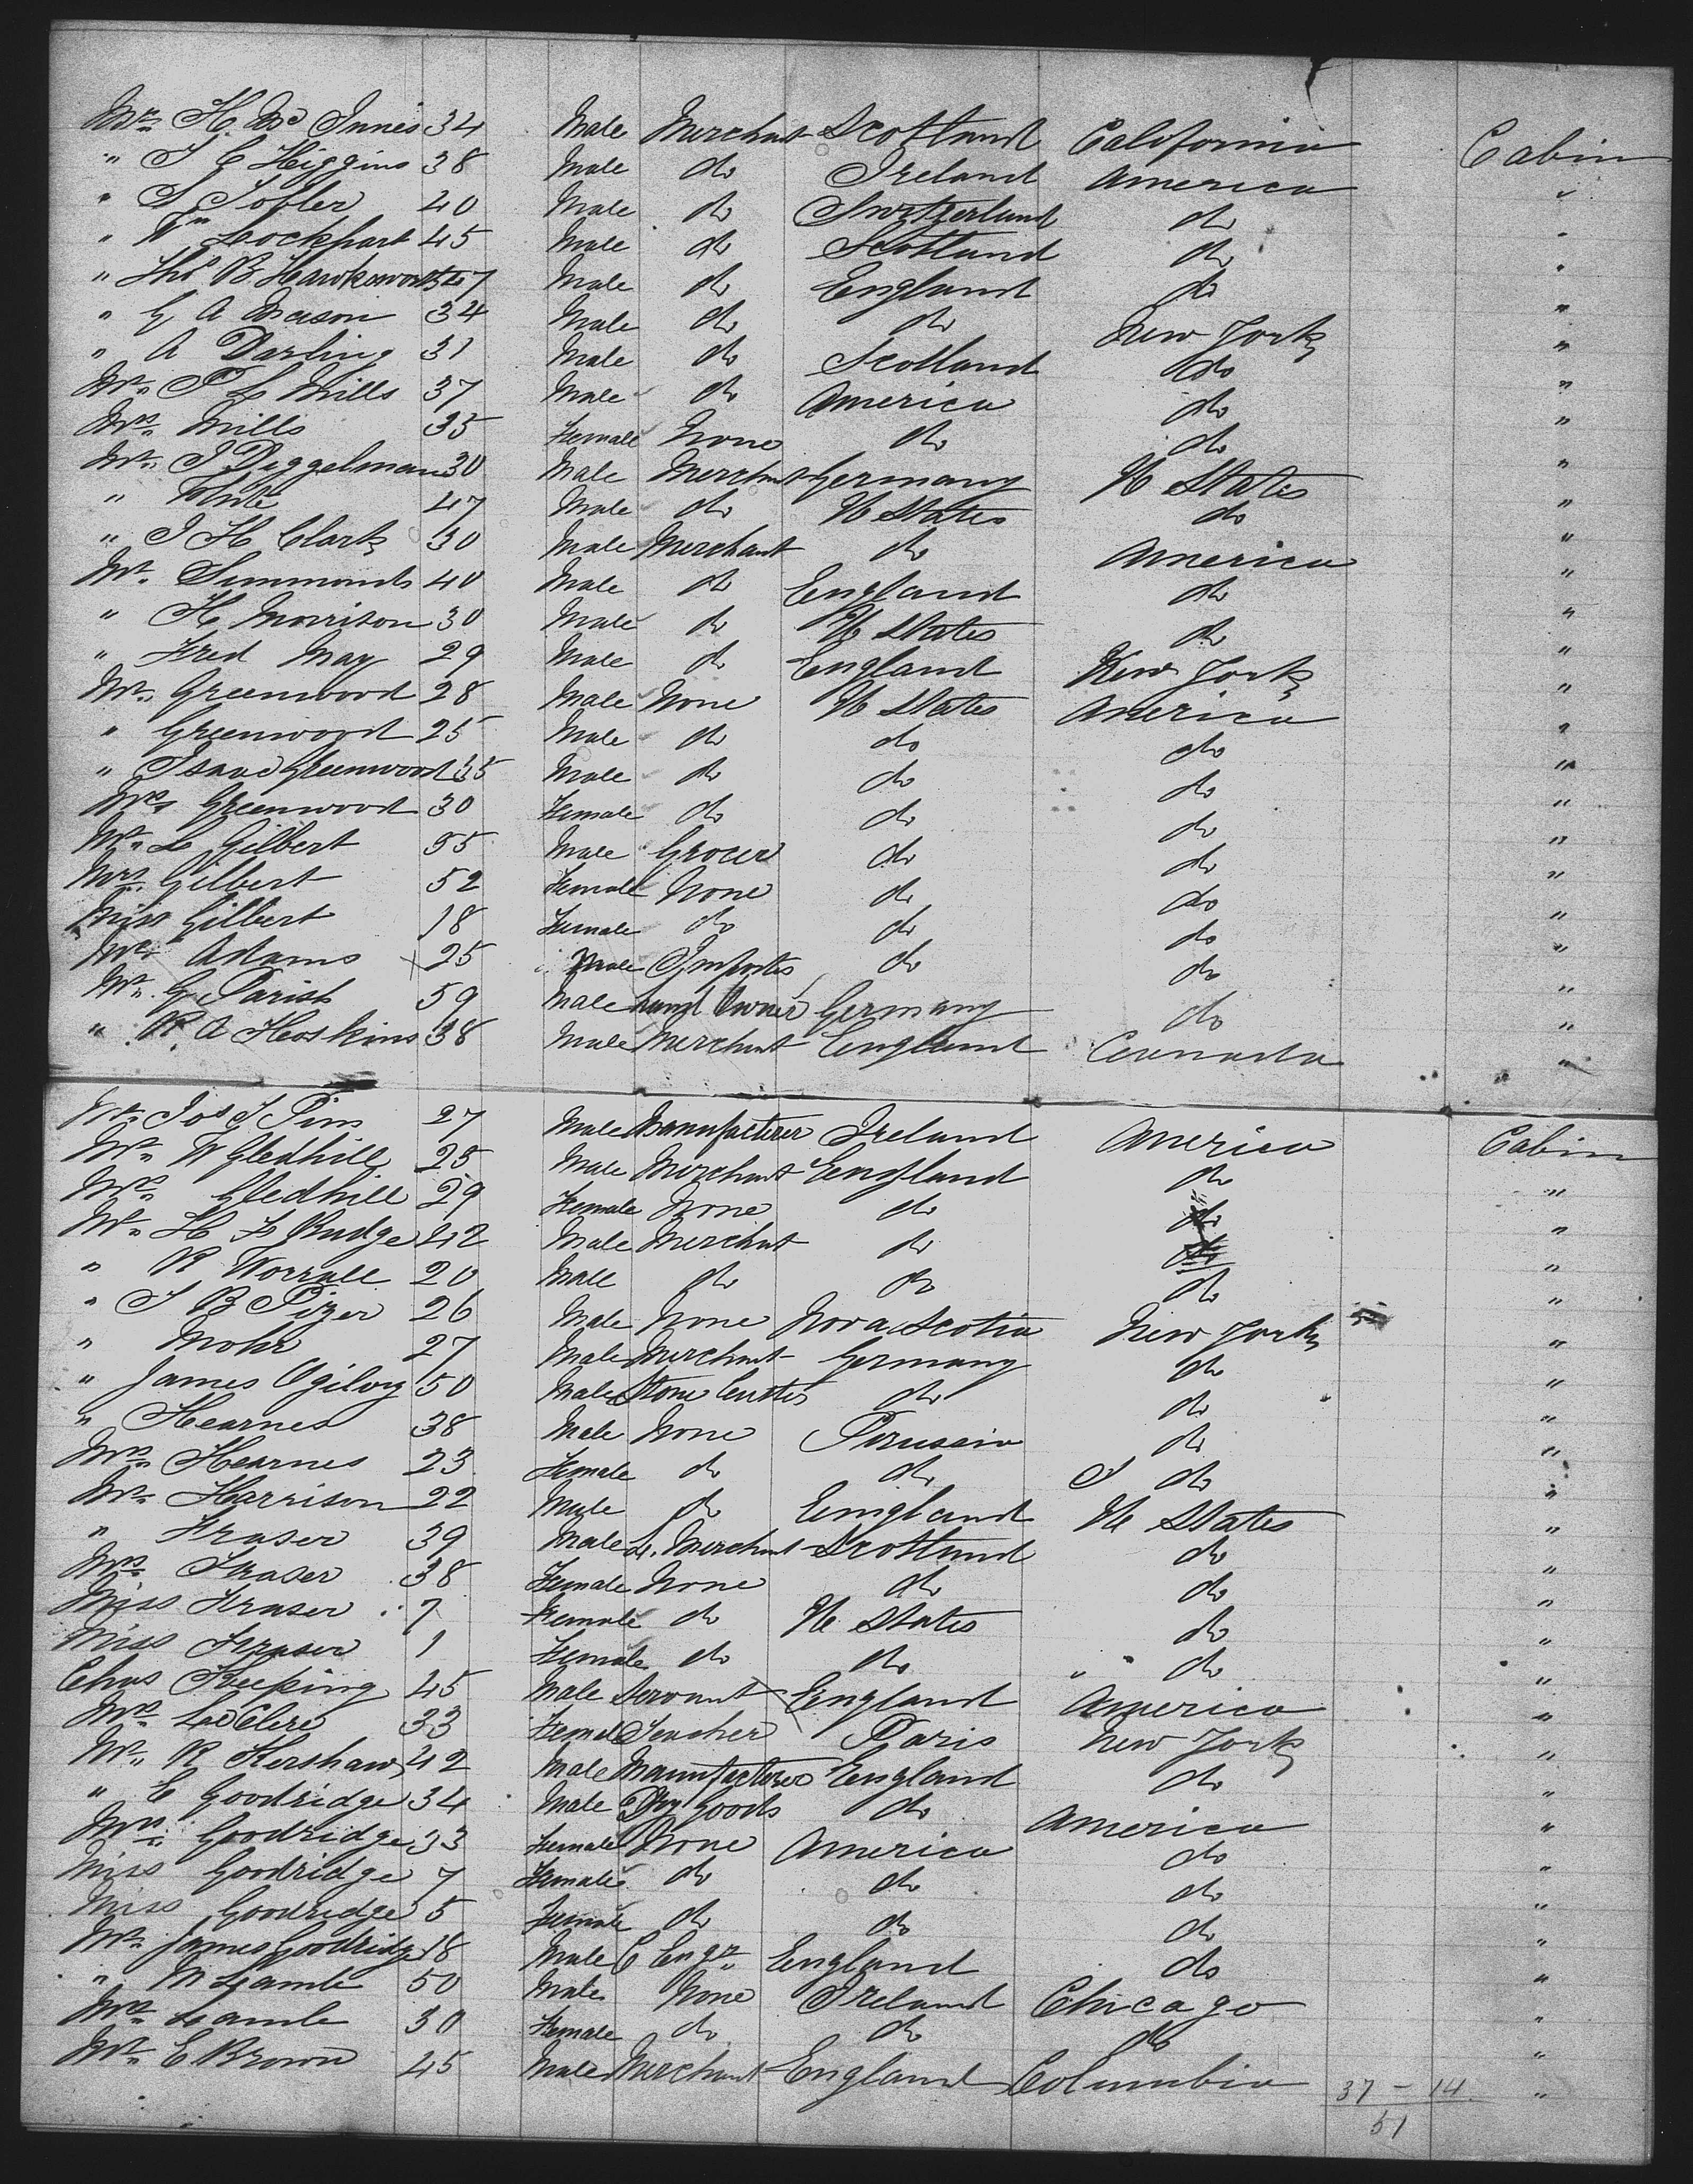 Mr. H. Mc Innes 34 Male Merchant Scotland California Cabin
" J C Higgins 38 Male do Ireland America "
" S Tobler 40 Male do Switzerland do "
" Wm Lockhart 45 Male do Scotland do "
" Thos B Hawksworth 47 Male do England do "
" G A Mason 34 Male do do New York "
" A Darling 31 Male do Scotland do "
Mr. P L Mills 37 Male do America do "
Mrs. Mills 35 Female None do do "
Mr. J Deggelman 30 Male Merchnt Germany U States "
" White 47 Male do U States do "
" J H Clark 30 Male Merchant do America "
Mr. Simmonds 40 Male do England do "
" H Morrison 30 Male do U States do "
" Fred May 29 Male do England New York "
Mr. Greenwood 28 Male None U States America "
" Greenwood 25 Male do do do "
" Isaac Greenwood 35 Male do do do "
Mrs Greenwood 30 Female do do do "
Mr. L Gilbert 55 Male Grocer do do "
Mrs. Gilbert 52 Female None do do "
Miss Gilbert 18 Female do do do "
Mr. Adams 25 Male Importer do do "
Mr. G Parish 59 Male Land Owner Germany do "
" R A Hoskins 38 Male Merchant England Cannada "
Mr. Jos J Pim 27 Male Manufacterer Ireland America Cabin
Mr. W Gledhill 25 Male Merchant England do "
Mrs. Gledhill 29 Female None do do "
Mr. H F Rudge 42 Male Merchnt do do "
" R Worrall 20 Male do do do "
" J B Pizer 26 Male None Nova Scotia New York "
" Mohr 27 Male Merchnt Germany do "
" James Ogilvy 50 Male Stone Cutter do do "
" Hearnes 38 Male None Prussia do "
Mrs. Hearnes 23 Female do do do "
Mr. Harrison 22 Male do England U States "
" Fraser 39 Male L. Merchnt Scotland do "
Mrs. Fraser 38 Female None do do "
Miss Fraser 7 Female do U States do "
Miss Fraser 1 Female do do " " do "
Chas Keeping 45 Male Servant England America "
Mrs. Le Clere 33 Female Teacher Paris New York "
Mr. R Kershaw 42 Male Manufacterer England do "
" C Goodridge 34 Male Dry Goods do America "
Mrs. Goodridge 33 Female None America do "
Miss Goodridge 7 Female do do do "
Miss Goodridge 5 Female do do do "
Mr. James Goodridge 18 Male C Engr. England do "
" M Lamb 50 Male None Ireland Chicago "
Mrs. Lamb 30 Female do do do "
Mr. C Brown 45 Male Merchant England Columbia "
37 - 14
51